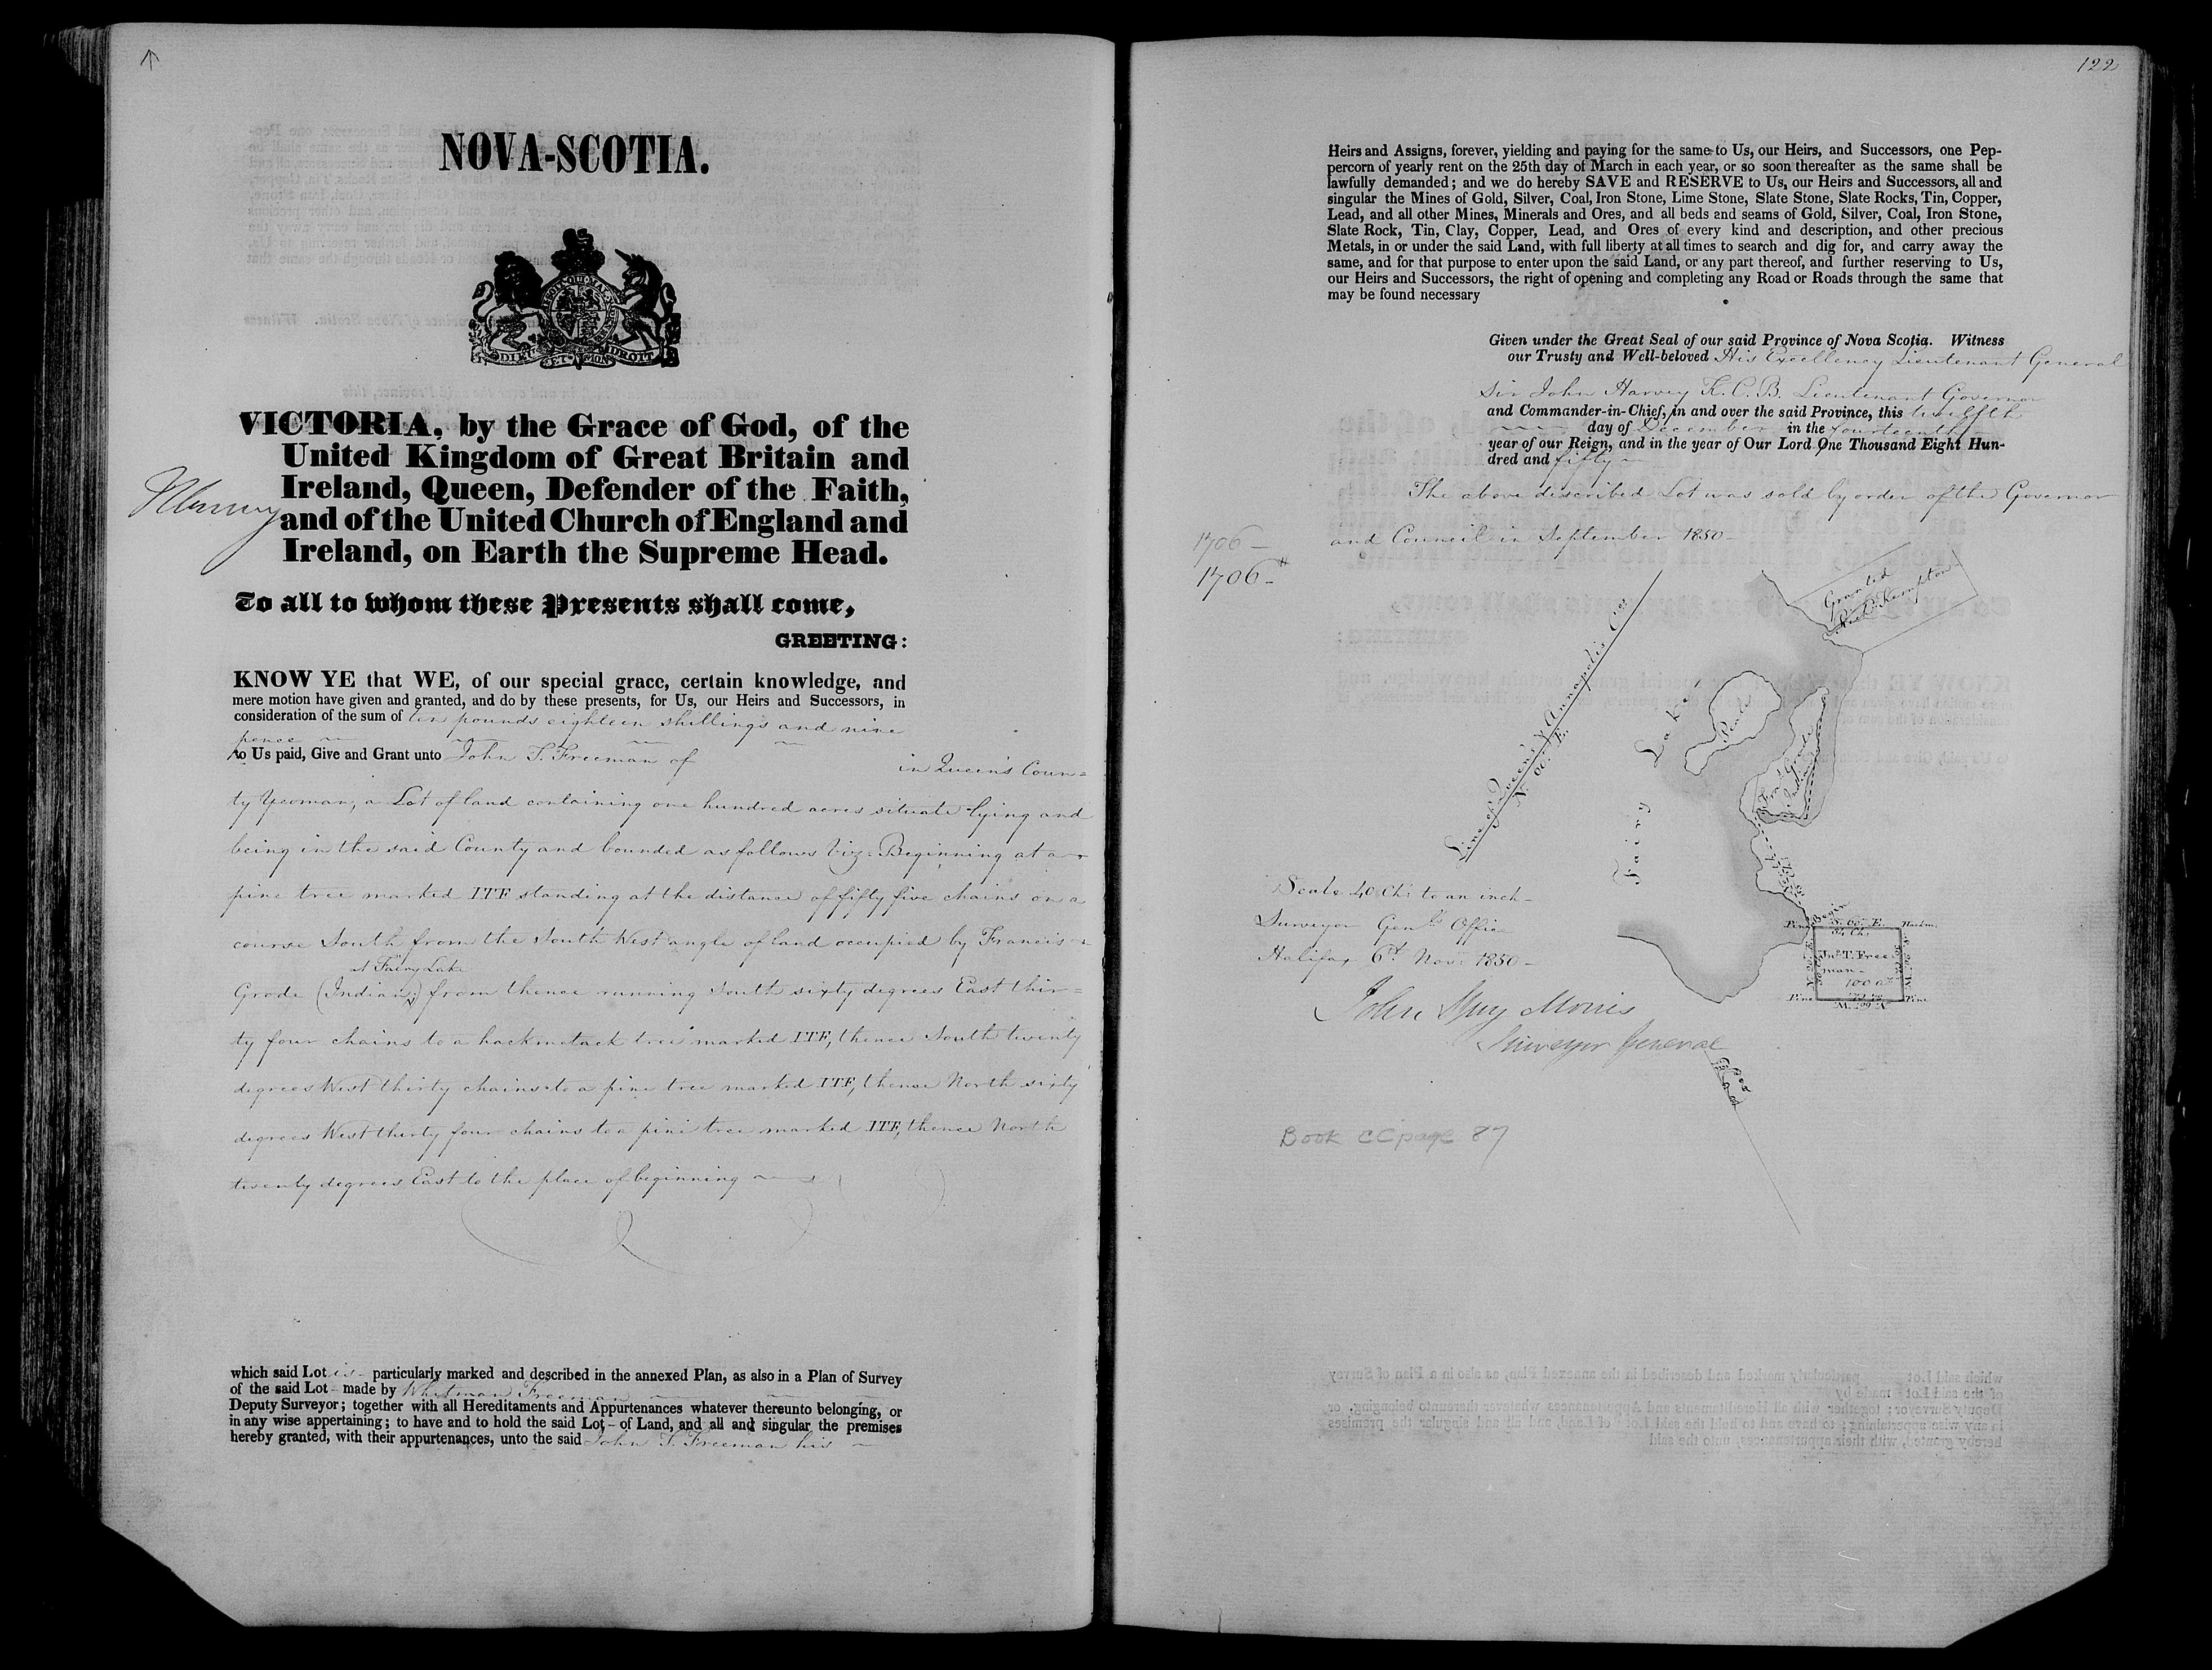 NOVA-SCOTIA.
DIEU ET MON DROIT
VICTORIA, by the Grace of God, of the
United Kingdom of Great Britain and
Ireland, Queen, Defender of the Faith,
and of the United Church of England and
Ireland, on Earth the Supreme Head.
To all to whom these Presents shall come,
GREETING:
KNOW YE that WE, of our special grace, certain knowledge, and
mere motion have given and granted, and do by these presents, for Us, our Heirs and Successors, in
consideration of the sum of ten pounds eighteen shillings and nine
pence
to Us paid, Give and Grant unto John T. Freeman of in Queen's Coun=
ty Yeoman, a Lot of land containing one hundred acres situate lying and
being in the said County and bounded as follows Viz: Beginning at a
pine tree marked ITF standing at the distance of fifty five chains on a
course South from the South West angle of land occupied by Francis
at Fairy Lake
Grode (Indian) from thence running South sixty degrees East thir=
ty four chains to a hackmetack tree marked ITF, thence South twenty
degrees West thirty chains to a pine tree marked ITF, thence North sixty
degrees West thirty four chains to a pine tree marked ITF, thence North
twenty degrees East to the place of beginning
which said Lot is particularly marked and described in the annexed Plan, as also in a Plan of Survey
of the said Lot made by Whitman Freeman
Deputy Surveyor; together with all Hereditaments and Appurtenances whatever thereunto belonging, or
in any wise appertaining; to have and to hold the said Lot of Land, and all and singular the premises
hereby granted, with their appurtenances, unto the said John T. Freeman his
122
Heirs and Assigns, forever, yielding and paying for the same to Us, our Heirs, and Successors, one Pep-
percorn of yearly rent on the 25th day of March in each year, or so soon thereafter as the same shall be
lawfully demanded; and we do hereby SAVE and RESERVE to Us, our Heirs and Successors, all and
singular the Mines of Gold, Silver, Coal, Iron Stone, Lime Stone, Slate Stone, Slate Rocks, Tin, Copper,
Lead, and all other Mines, Minerals and Ores, and all beds and seams of Gold, Silver, Coal, Iron Stone,
Slate Rock, Tin, Clay, Copper, Lead, and Ores of every kind and description, and other precious
Metals, in or under the said Land, with full liberty at all times to search and dig for, and carry away the
same, and for that purpose to enter upon the said Land, or any part thereof, and further reserving to Us,
our Heirs and Successors, the right of opening and completing any Road or Roads through the same that
may be found necessary
Given under the Great Seal of our said Province of Nova Scotia. Witness
our Trusty and Well-beloved His Excellency Lieutenant General
Sir John Harvey K.C.B. Lieutenant Governor
and Commander-in-Chief, in and over the said Province, this twelfth
day of December in the fourteenth
year of our Reign, and in the year of Our Lord One Thousand Eight Hun-
dred and fifty
The above described Lot was sold by order of the Governor
and Council in September 1850
1706
1706
Granted
Kempton
Line of Queen's & Annapolis Cos
Fairy Lake
Fras Grode
Indian
Scale 40 Chs to an inch
Surveyor Genls Office
Halifax 6th Novr 1850
John Spry Morris
Surveyor General
Begin
Pine
S. 60 E.
34 Ch.
Hackm.
Jno T. Free
man
100 a
Pine
Pine
N. 60 W.
Book CC page 87